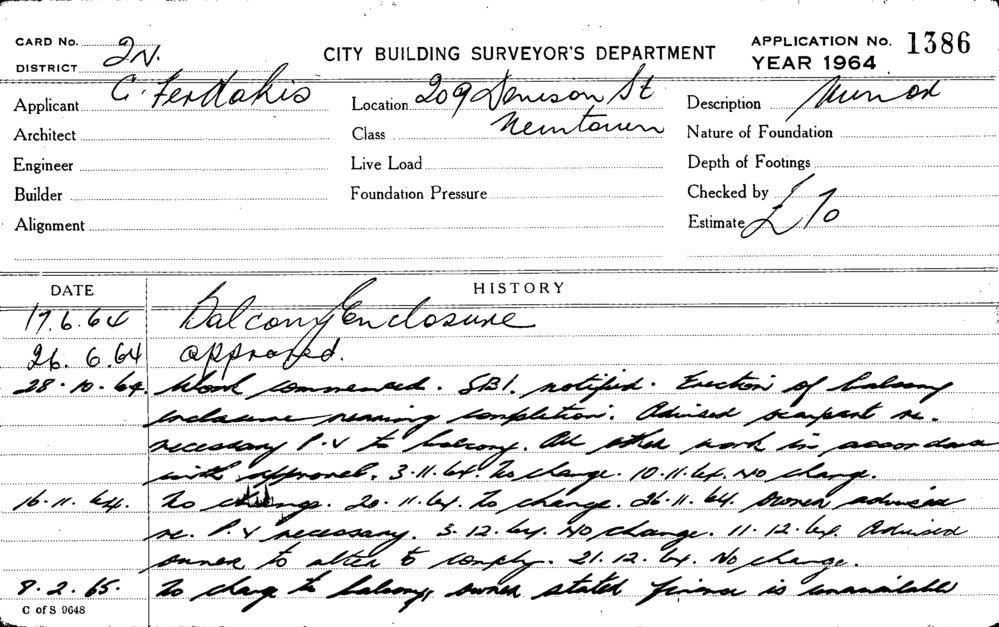 CARD No.
DISTRICT 2N.
CITY BUILDING SURVEYOR'S DEPARTMENT
APPLICATION No. 1386
YEAR 1964
Applicant
Location 209 Denison St
Description Minor
Architect
Class Newtown
Nature of Foundation
Engineer
Live Load
Depth of Footings
Builder
Foundation Pressure
Checked by
Alignment
Estimate £70
DATE
HISTORY
17.6.64 Balcony Enclosure
26.6.64 approved.
28.10.64. Work commenced. SBI. notified. Erection of balcony
enclosure nearing completion. Advised occupant re.
necessary P.V to balcony. All other work in accordance
with approval. 3.11.64. No change. 10.11.64. No change.
16.11.64. No change. 20.11.64. No change. 26.11.64. Owner advised
re. P.V necessary. 3.12.64. No change. 11.12.64. Advised
owner to alter to comply. 21.12.64. No change.
8.2.65. No change to balcony, owner stated finance is unavailable
C of S 9648